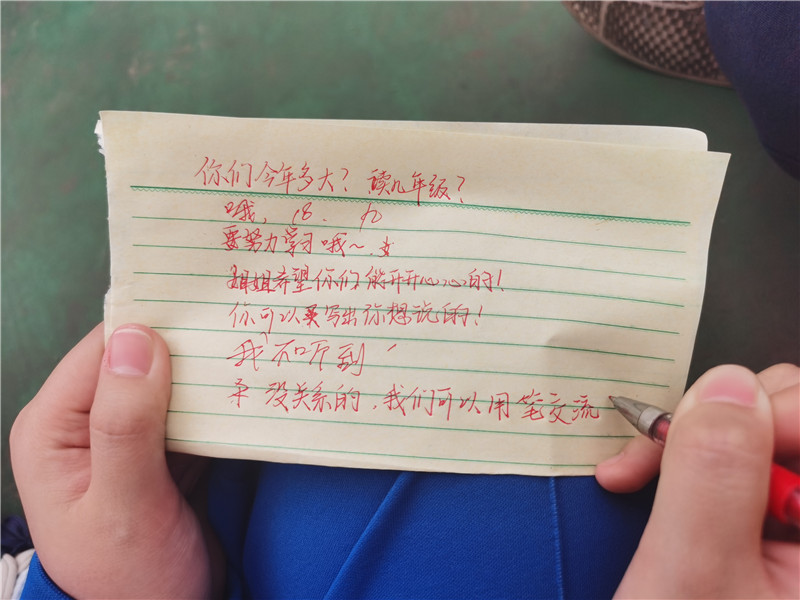 你们今年多大？读几年级？
哦，18. 九
要努力学习哦~
姐姐希望你们能开开心心的！
你可以写出你想说的！
我不听到
没关系的，我们可以用笔交流